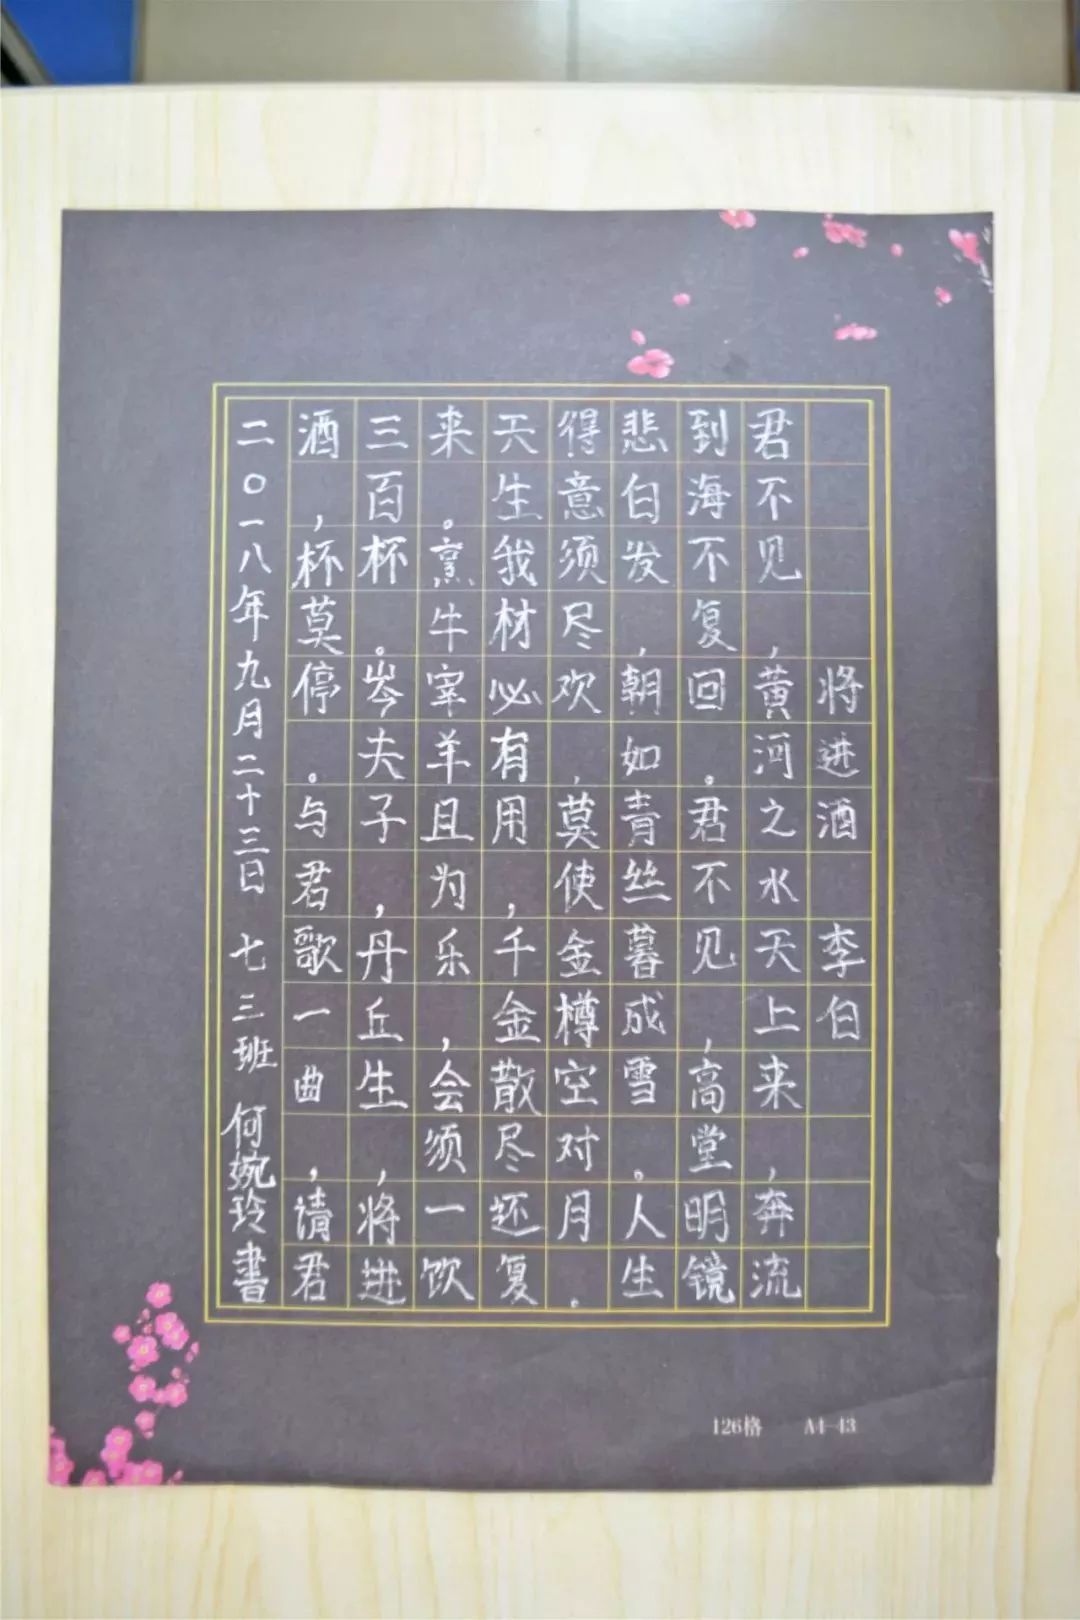 将进酒 李白
君不见，黄河之水天上来，奔流
到海不复回。君不见，高堂明镜
悲白发，朝如青丝暮成雪。人生
得意须尽欢，莫使金樽空对月。
天生我材必有用，千金散尽还复
来。烹牛宰羊且为乐，会须一饮
三百杯。岑夫子，丹丘生，将进
酒，杯莫停。与君歌一曲，请君
二〇一八年九月二十三日 七三班 何婉玲書
126格 A4-43